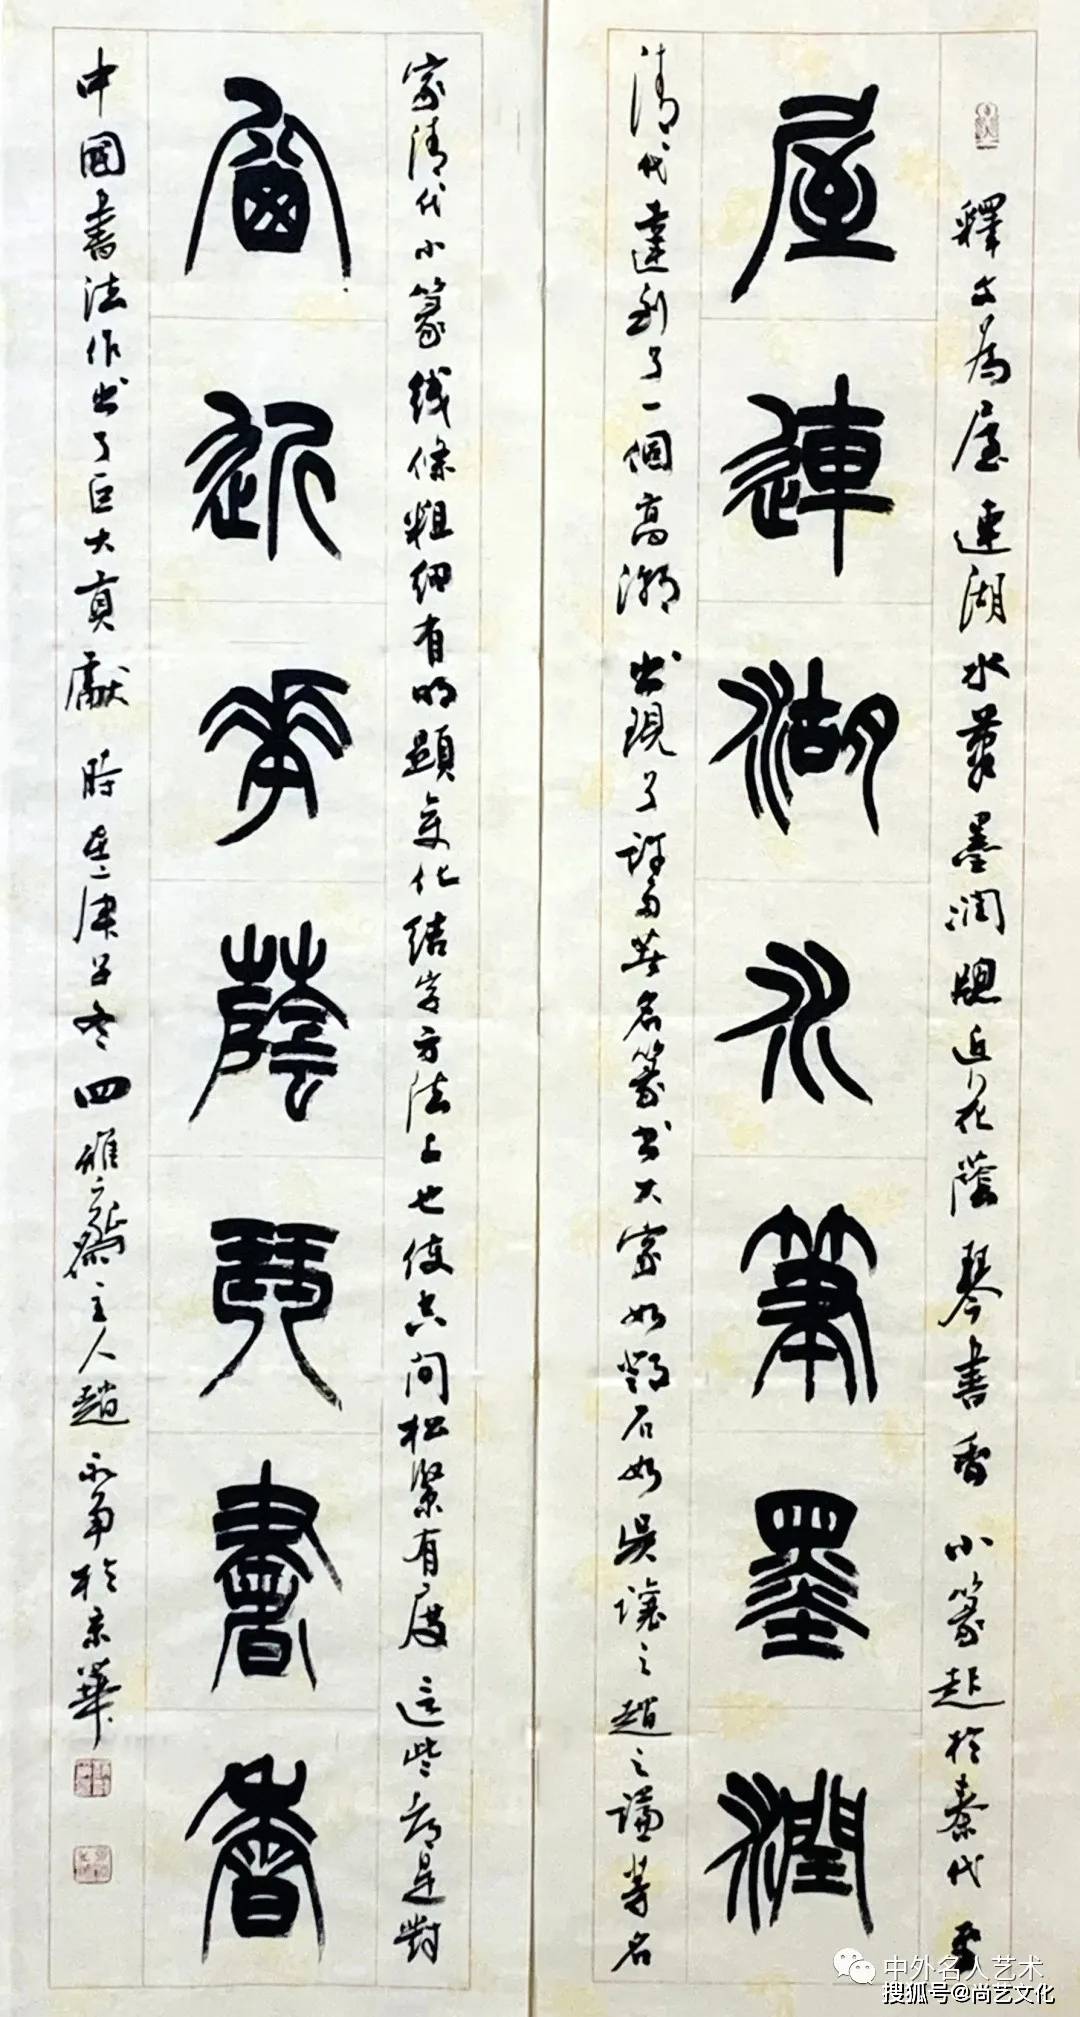 释文为屋連湖水筆墨潤窻近花蔭琴書香小篆起於秦代至
屋連湖水筆墨潤
清代達到了一個高潮出現了許多著名篆书大家如鄧石如吴讓之趙之謙等名
家清代小篆线條粗细有明顯变化结字方法上也使空间松紧有度這些都是對
窗近花蔭琴書香
中國書法作出了巨大貢獻時在庚子冬四雅齋主人趙永軍於京華
中外名人艺术
搜狐号@尚艺文化